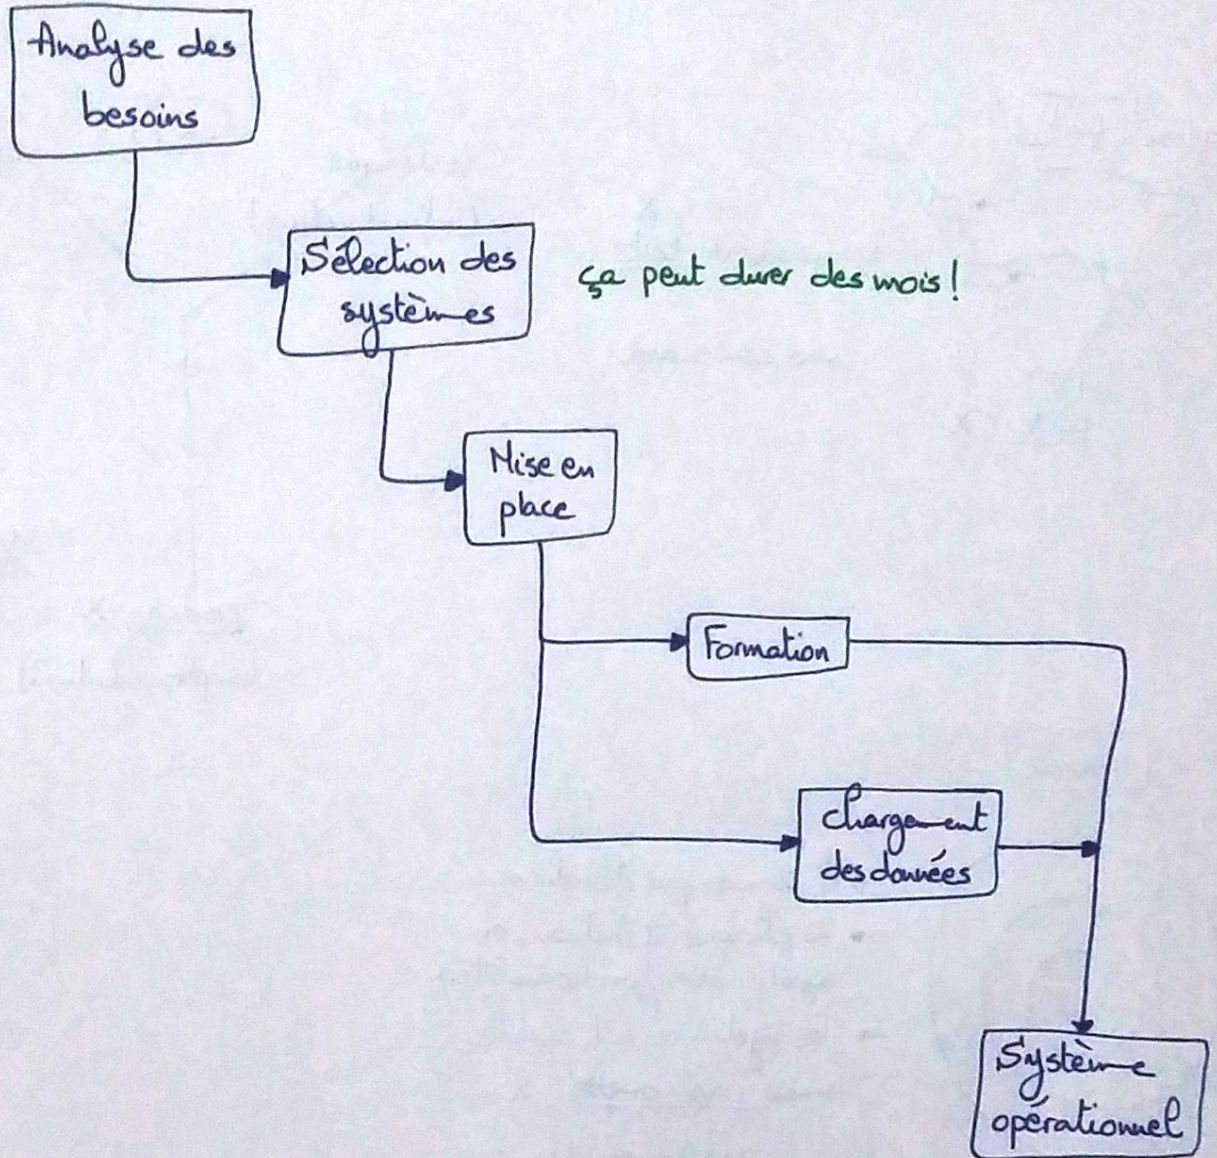 Analyse des
besoins
Sélection des
systèmes
ça peut durer des mois !
Mise en
place
Formation
chargement
des données
Système
opérationnel